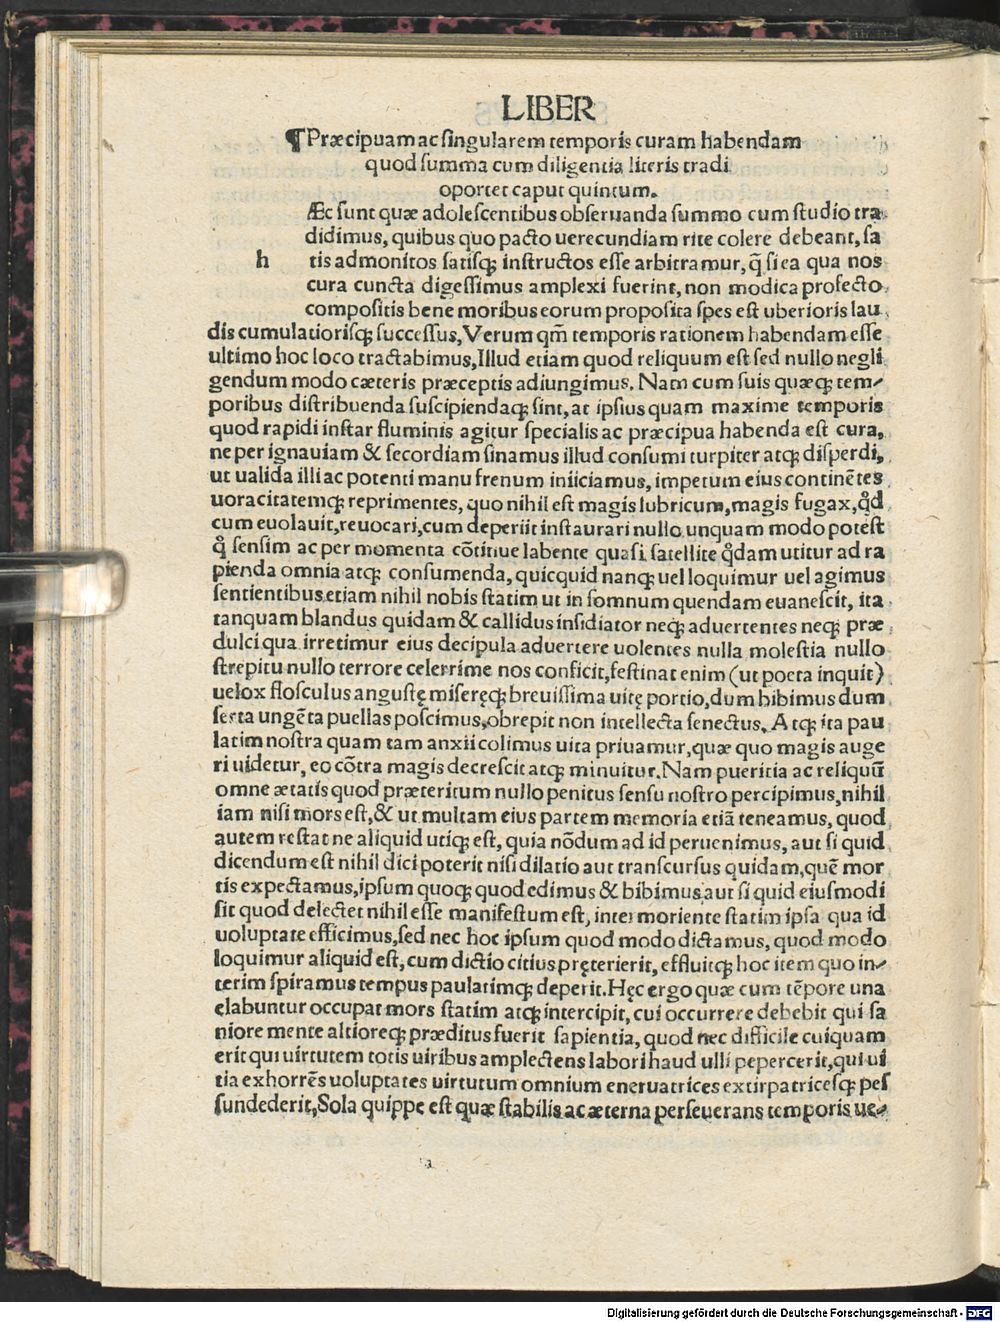 LIBER
¶Præcipuam ac ſingularem temporis curam habendam
quod ſumma cum diligentia literis tradi
oportet caput quintum.
Æc ſunt quæ adoleſcentibus obſeruanda ſummo cum ſtudio tra
didimus, quibus quo pacto uerecundiam rite colere debeant, ſa
h tis admonitos ſatiſq; inſtructos eſſe arbitramur, q̃ ſi ea qua nos
cura cuncta digeſſimus amplexi fuerint, non modica profecto
compoſitis bene moribus eorum propoſita ſpes eſt uberioris lau
dis cumulatioriſq; ſucceſſus, Verum qm̃ temporis rationem habendam eſſe
ultimo hoc loco tractabimus, Illud etiam quod reliquum eſt ſed nullo negli
gendum modo cæteris præceptis adiungimus. Nam cum ſuis quæq; tem-
poribus diſtribuenda ſuſcipiendaq; ſint, at ipſius quam maxime temporis
quod rapidi inſtar fluminis agitur ſpecialis ac præcipua habenda eſt cura,
ne per ignauiam & ſecordiam ſinamus illud conſumi turpiter atq; diſperdi,
ut ualida illi ac potenti manu frenum iniiciamus, impetum eius continẽtes
uoracitatemq; reprimentes, quo nihil eſt magis lubricum, magis fugax, q̊d
cum euolauit, reuocari, cum deperiit inſtaurari nullo unquam modo poteſt
q̊ ſenſim ac per momenta cõtinue labente quaſi ſatellite q̊dam utitur ad ra
pienda omnia atq; conſumenda, quicquid nanq; uel loquimur uel agimus
ſentientibus etiam nihil nobis ſtatim ut in ſomnum quendam euaneſcit, ita
tanquam blandus quidam & callidus inſidiator neq; aduertentes neq; præ
dulci qua irretimur eius decipula aduertere uolentes nulla moleſtia nullo
ſtrepitu nullo terrore celerrime nos conficit, feſtinat enim (ut poeta inquit)
uelox floſculus anguſtę miſeręq; breuiſſima uitę portio, dum bibimus dum
ſerta ungẽta puellas poſcimus, obrepit non intellecta ſenectus. Atq; ita pau
latim noſtra quam tam anxii colimus uita priuamur, quæ quo magis auge
ri uidetur, eo cõtra magis decreſcit atq; minuitur. Nam pueritia ac reliquũ
omne ætatis quod præteritum nullo penitus ſenſu noſtro percipimus, nihil
iam niſi mors eſt, & ut multam eius partem memoria etiã teneamus, quod
autem reſtat ne aliquid utiq; eſt, quia nõdum ad id peruenimus, aut ſi quid
dicendum eſt nihil dici poterit niſi dilatio aut tranſcurſus quidam, quẽ mor
tis expectamus, ipſum quoq; quod edimus & bibimus aut ſi quid eiuſmodi
ſit quod delectet nihil eſſe manifeſtum eſt, inter moriente ſtatim ipſa qua id
uoluptate efficimus, ſed nec hoc ipſum quod modo dictamus, quod modo
loquimur aliquid eſt, cum dictio citius pręterierit, effluitq; hoc item quo in-
terim ſpiramus tempus paulatimq; deperit. Hęc ergo quæ cum tẽpore una
elabuntur occupat mors ſtatim atq; intercipit, cui occurrere debebit qui ſa
niore mente altioreq; præditus fuerit ſapientia, quod nec difficile cuiquam
erit qui uirtutem totis uiribus amplectens labori haud ulli pepercerit, qui ui
tia exhorrẽs uoluptates uirtutum omnium eneruatrices extirpatriceſq; peſ
ſundederit, Sola quippe eſt quæ ſtabilis ac æterna perſeuerans temporis ue-
Digitalisierung gefördert durch die Deutsche Forschungsgemeinschaft - DFG